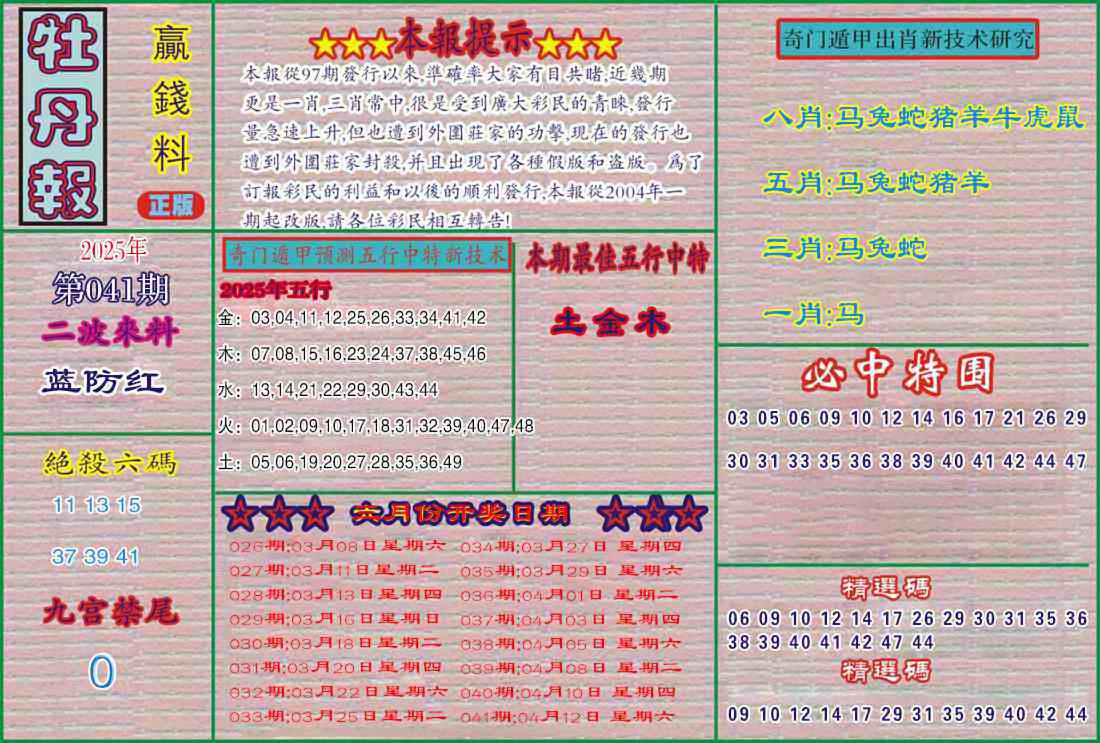 牡丹報
贏錢料
正版
★★★本報提示★★★
本報從97期發行以來,準確率大家有目共睹,近幾期
更是一肖,三肖常中,很是受到廣大彩民的青睞,發行
量急速上升,但也遭到外圍莊家的功擊,現在的發行也
遭到外圍莊家封殺,并且出現了各種假版和盗版。爲了
訂報彩民的利益和以後的順利發行,本報從2004年一
期起改版,請各位彩民相互轉告!
奇门遁甲出肖新技术研究
八肖:马兔蛇猪羊牛虎鼠
五肖:马兔蛇猪羊
三肖:马兔蛇
一肖:马
2025年
第041期
二波來料
蓝防红
奇门遁甲预测五行中特新技术
2025年五行
金：03,04,11,12,25,26,33,34,41,42
木：07,08,15,16,23,24,37,38,45,46
水：13,14,21,22,29,30,43,44
火：01,02,09,10,17,18,31,32,39,40,47,48
土：05,06,19,20,27,28,35,36,49
本期最佳五行中特
土金木
必中特围
03 05 06 09 10 12 14 16 17 21 26 29
30 31 33 35 36 38 39 40 41 42 44 47
絶殺六碼
11 13 15
37 39 41
九宫禁尾
0
☆☆☆ 六月份开奖日期 ☆☆☆
026期:03月08日星期六 034期:03月27日 星期四
027期:03月11日星期二 035期:03月29日 星期六
028期:03月13日星期四 036期:04月01日 星期二
029期:03月16日星期日 037期:04月03日 星期四
030期:03月18日星期二 038期:04月05日 星期六
031期:03月20日星期四 039期:04月08日 星期二
032期:03月22日星期六 040期:04月10日 星期四
033期:03月25日星期二 041期:04月12日 星期六
精選碼
06 09 10 12 14 17 26 29 30 31 35 36
38 39 40 41 42 47 44
精選碼
09 10 12 14 17 29 31 35 39 40 42 44